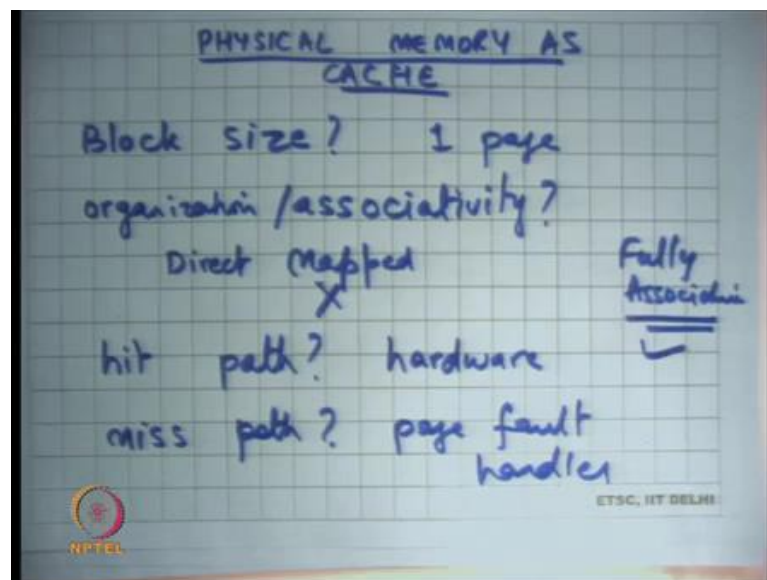 PHYSICAL MEMORY AS
CACHE
Block size? 1 page
organization/associativity?
Direct Mapped
X
Fully
Associative
hit path? hardware
miss path? page fault
handler
ETSC, IIT DELHI
NPTEL